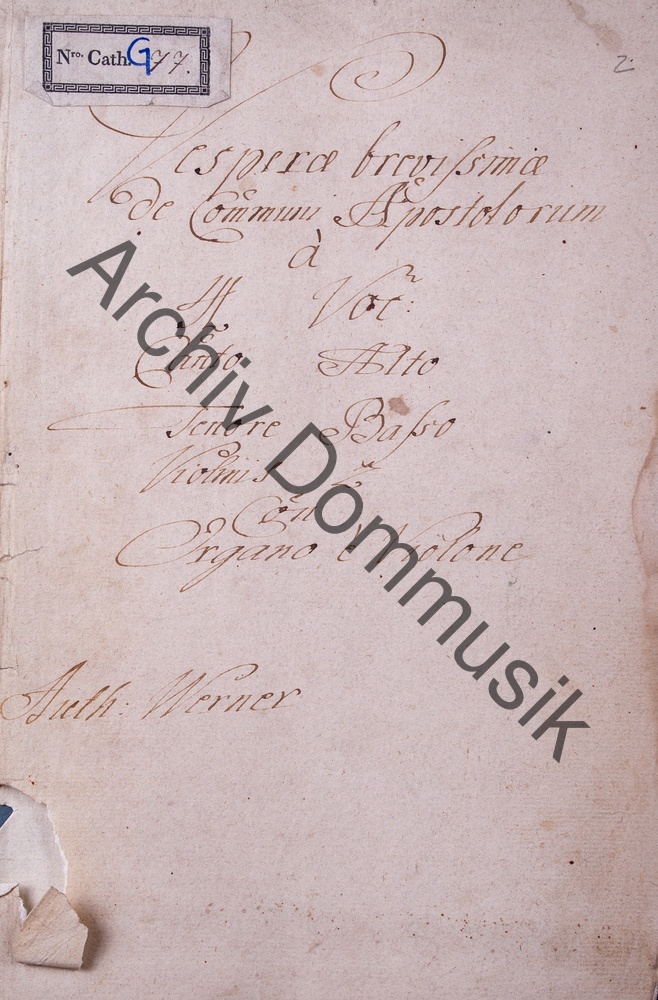 Nro. Cath. G 77.
2.
Vesperæ brevissimæ
de Communi Apostolorum
à
4 Voc:
Canto Alto
Tenore Basso
Violinis 2
Con
Organo e Violone
Auth: Werner
Archiv Dommusik